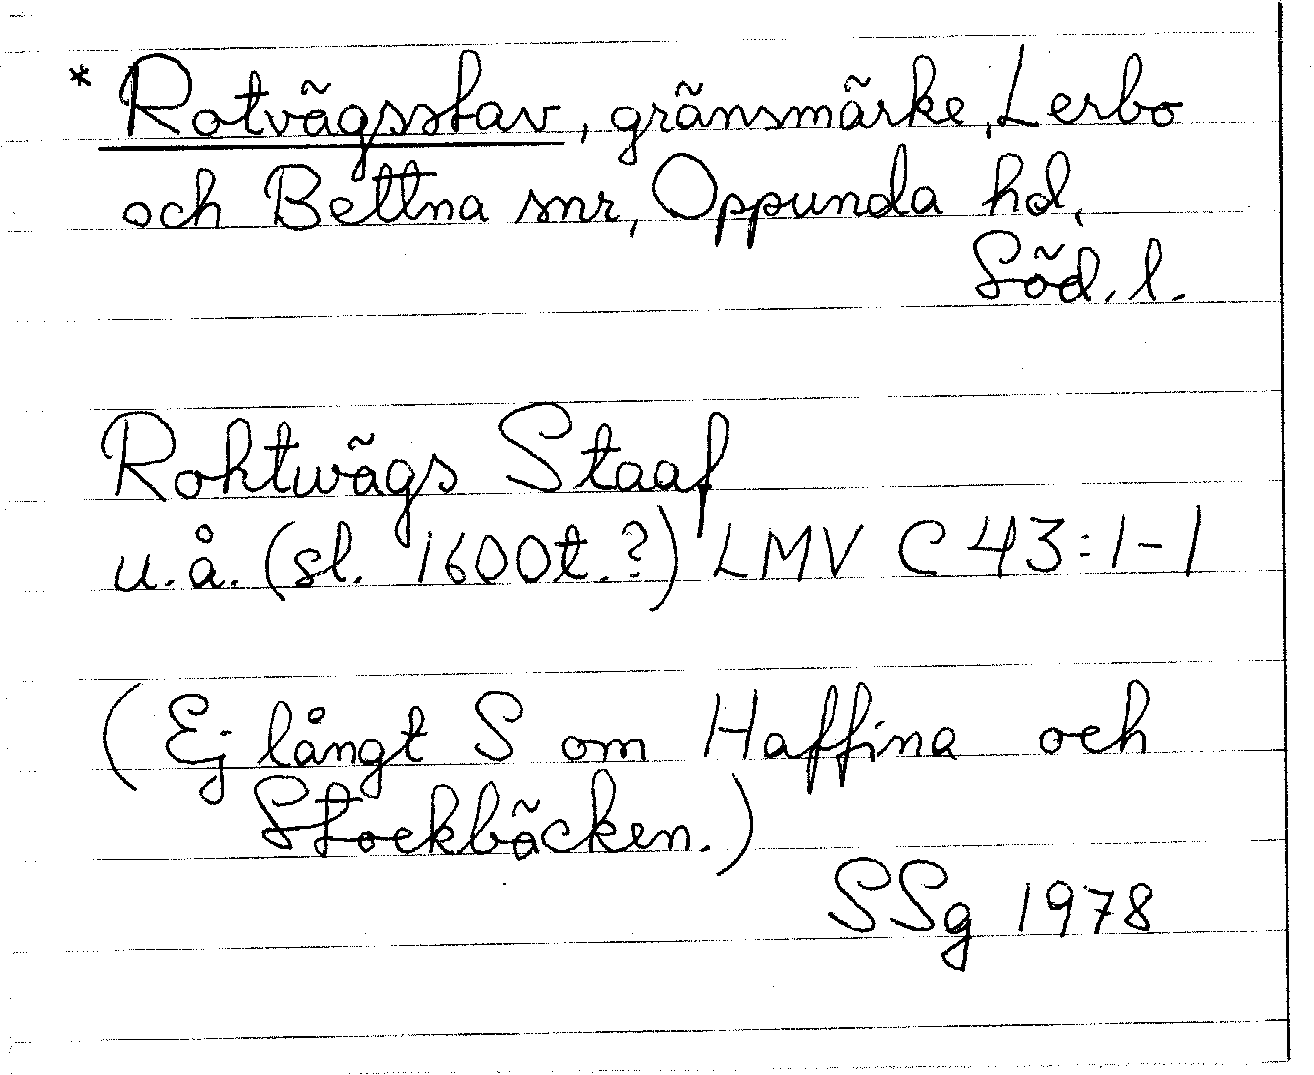 * Rotvägsstav, gränsmärke, Lerbo
och Bettna snr, Oppunda hd,
Söd. l.
Rohtwägs Staaf
u.å. (sl. 1600t.?) LMV C 43:1-1
(Ej långt S om Haffina och
Stockbäcken.)
SSg 1978